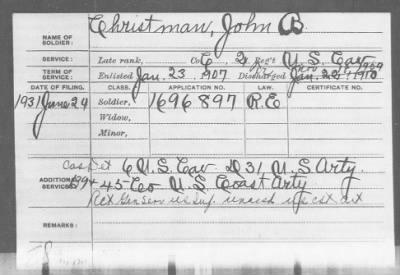 NAME OF SOLDIER: Christman, John B
SERVICE: Late rank, Co C, 2 Reg't U.S. Cav
TERM OF SERVICE: Enlisted Jan. 23, 1907 Discharged Jan. 22, 1910
DATE OF FILING. CLASS. APPLICATION NO. LAW. CERTIFICATE NO.
1931 June 24 Soldier, 1696897 R.E.
Widow,
Minor,
ADDITIONAL SERVICES: Cas Det 6 U.S. Cav D 31 U.S. Arty.
45 Co U.S. Coast Arty
Gen Serv US Inf.
REMARKS: